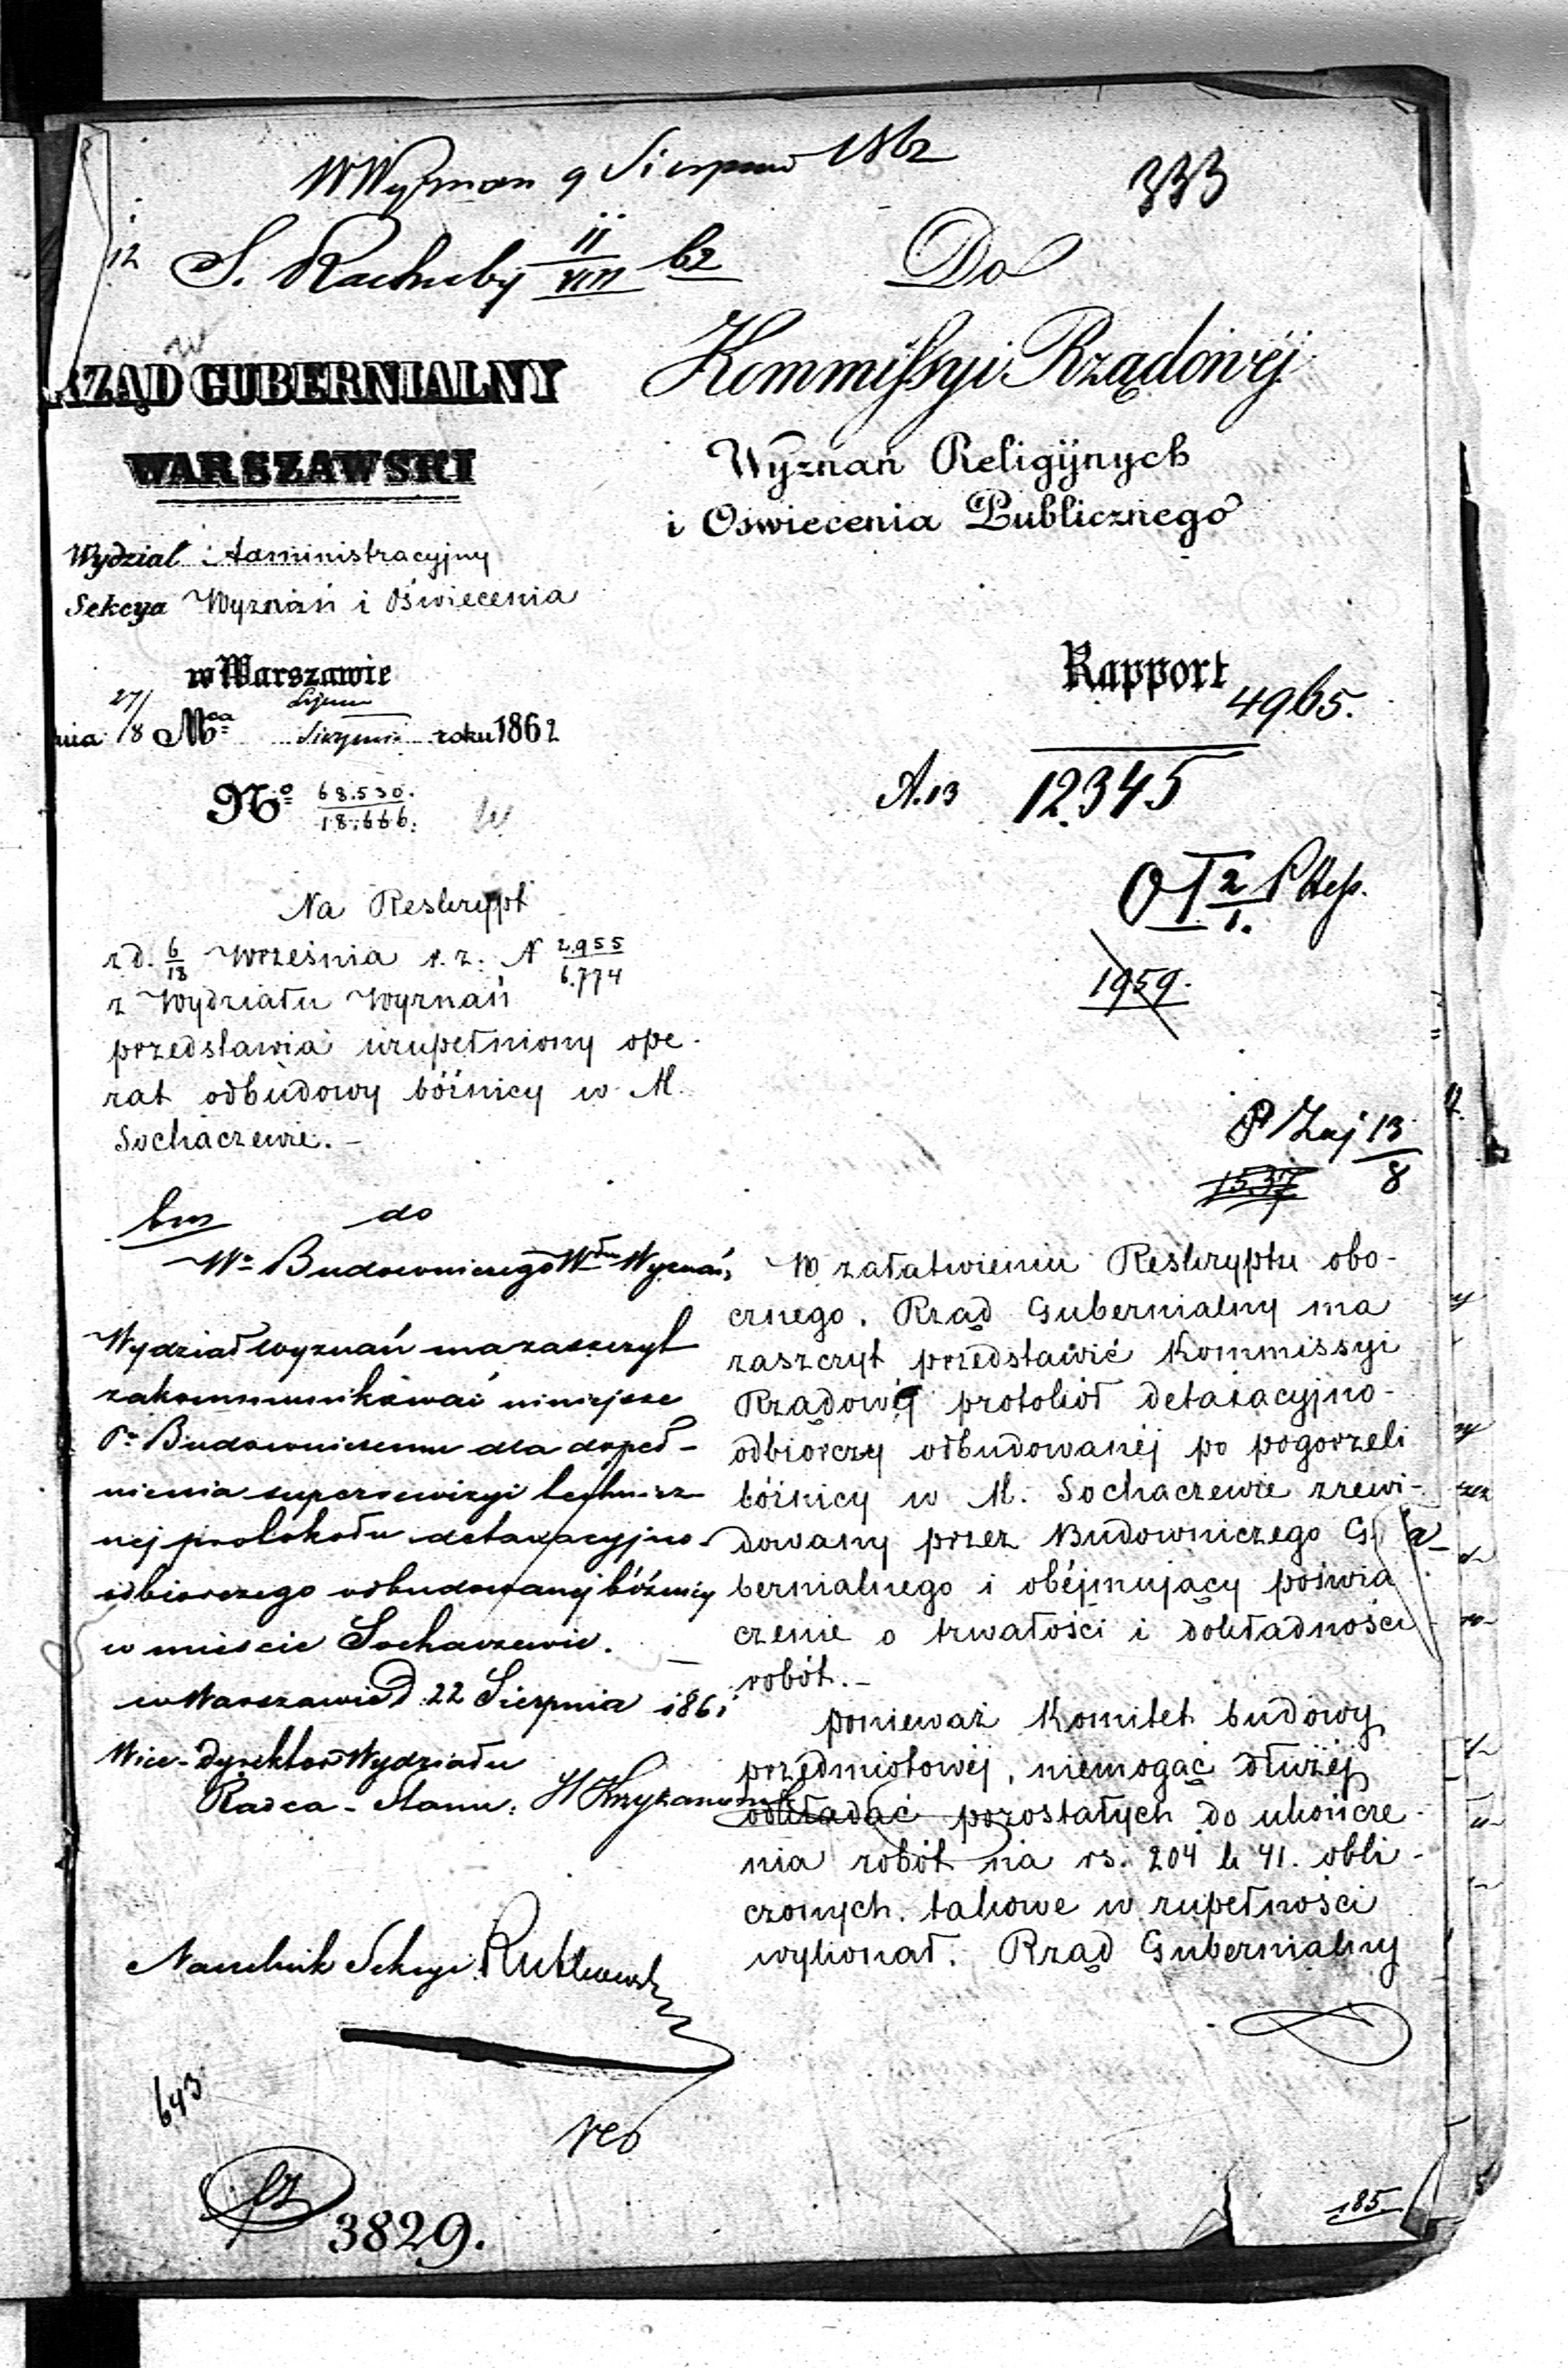 W Wyznan 9 Sierpnia 1862
333
12 S. Rachuby 11/VIII 62
Do
RZĄD GUBERNIALNY
WARSZAWSKI
Kommissyi Rządowéj
Wyznań Religijnych
i Oświecenia Publicznego
Wydział Administracyjny
Sekcya Wyznań i Oświecenia
w Warszawie
nia 27/8 Mca Lipca/Sierpnia roku 1862
No 68.530./18.666.
Rapport
4965.
A.13 12345
1959.
P Zaj 13/8
1537
Na Reskrypt
z d. 6/18 Września r. z. N 2.955/6.774
z Wydziału Wyznań
przedstawia uzupełniony ope-
rat odbudowy bóżnicy w M.
Sochaczewie. -
do
Wo Budowniczego Wdu Wyznań,
Wydział Wyznań ma zaszczyt
zakommunikować niniejsze
Pu Budowniczemu dla dopeł-
nienia superrewizyi technicz
nej protokołu detaxacyjno-
odbiorczego odbudowanej bóżnicy
w mieście Sochaczewie. -
w Warszawie d. 22 Sierpnia 186
Wice-Dyrektor Wydziału
Radca-Stanu: H Krzyżanowski
Naczelnik Sekcyi
643
3829.
W załatwieniu Reskryptu obo-
cznego. Rząd Gubernialny ma
zaszczyt przedstawić Kommissyi
Rządowéj protokół detaxacyjno-
odbiorczy odbudowanéj po pogorzeli
bóżnicy w M. Sochaczewie zrewi-
dowany przez Budowniczego Gu-
bernialnego i obéjmujący poświa
czenie o trwałości i dokładności
robót. -
Ponieważ Komitet budowy
przedmiotowéj, niemogąc dłużéj
odkładać pozostałych do ukończe-
nia robót na rs. 204 k 41. obli-
czonych. takowe w zupełności
wykonał. Rząd Gubernialny
185